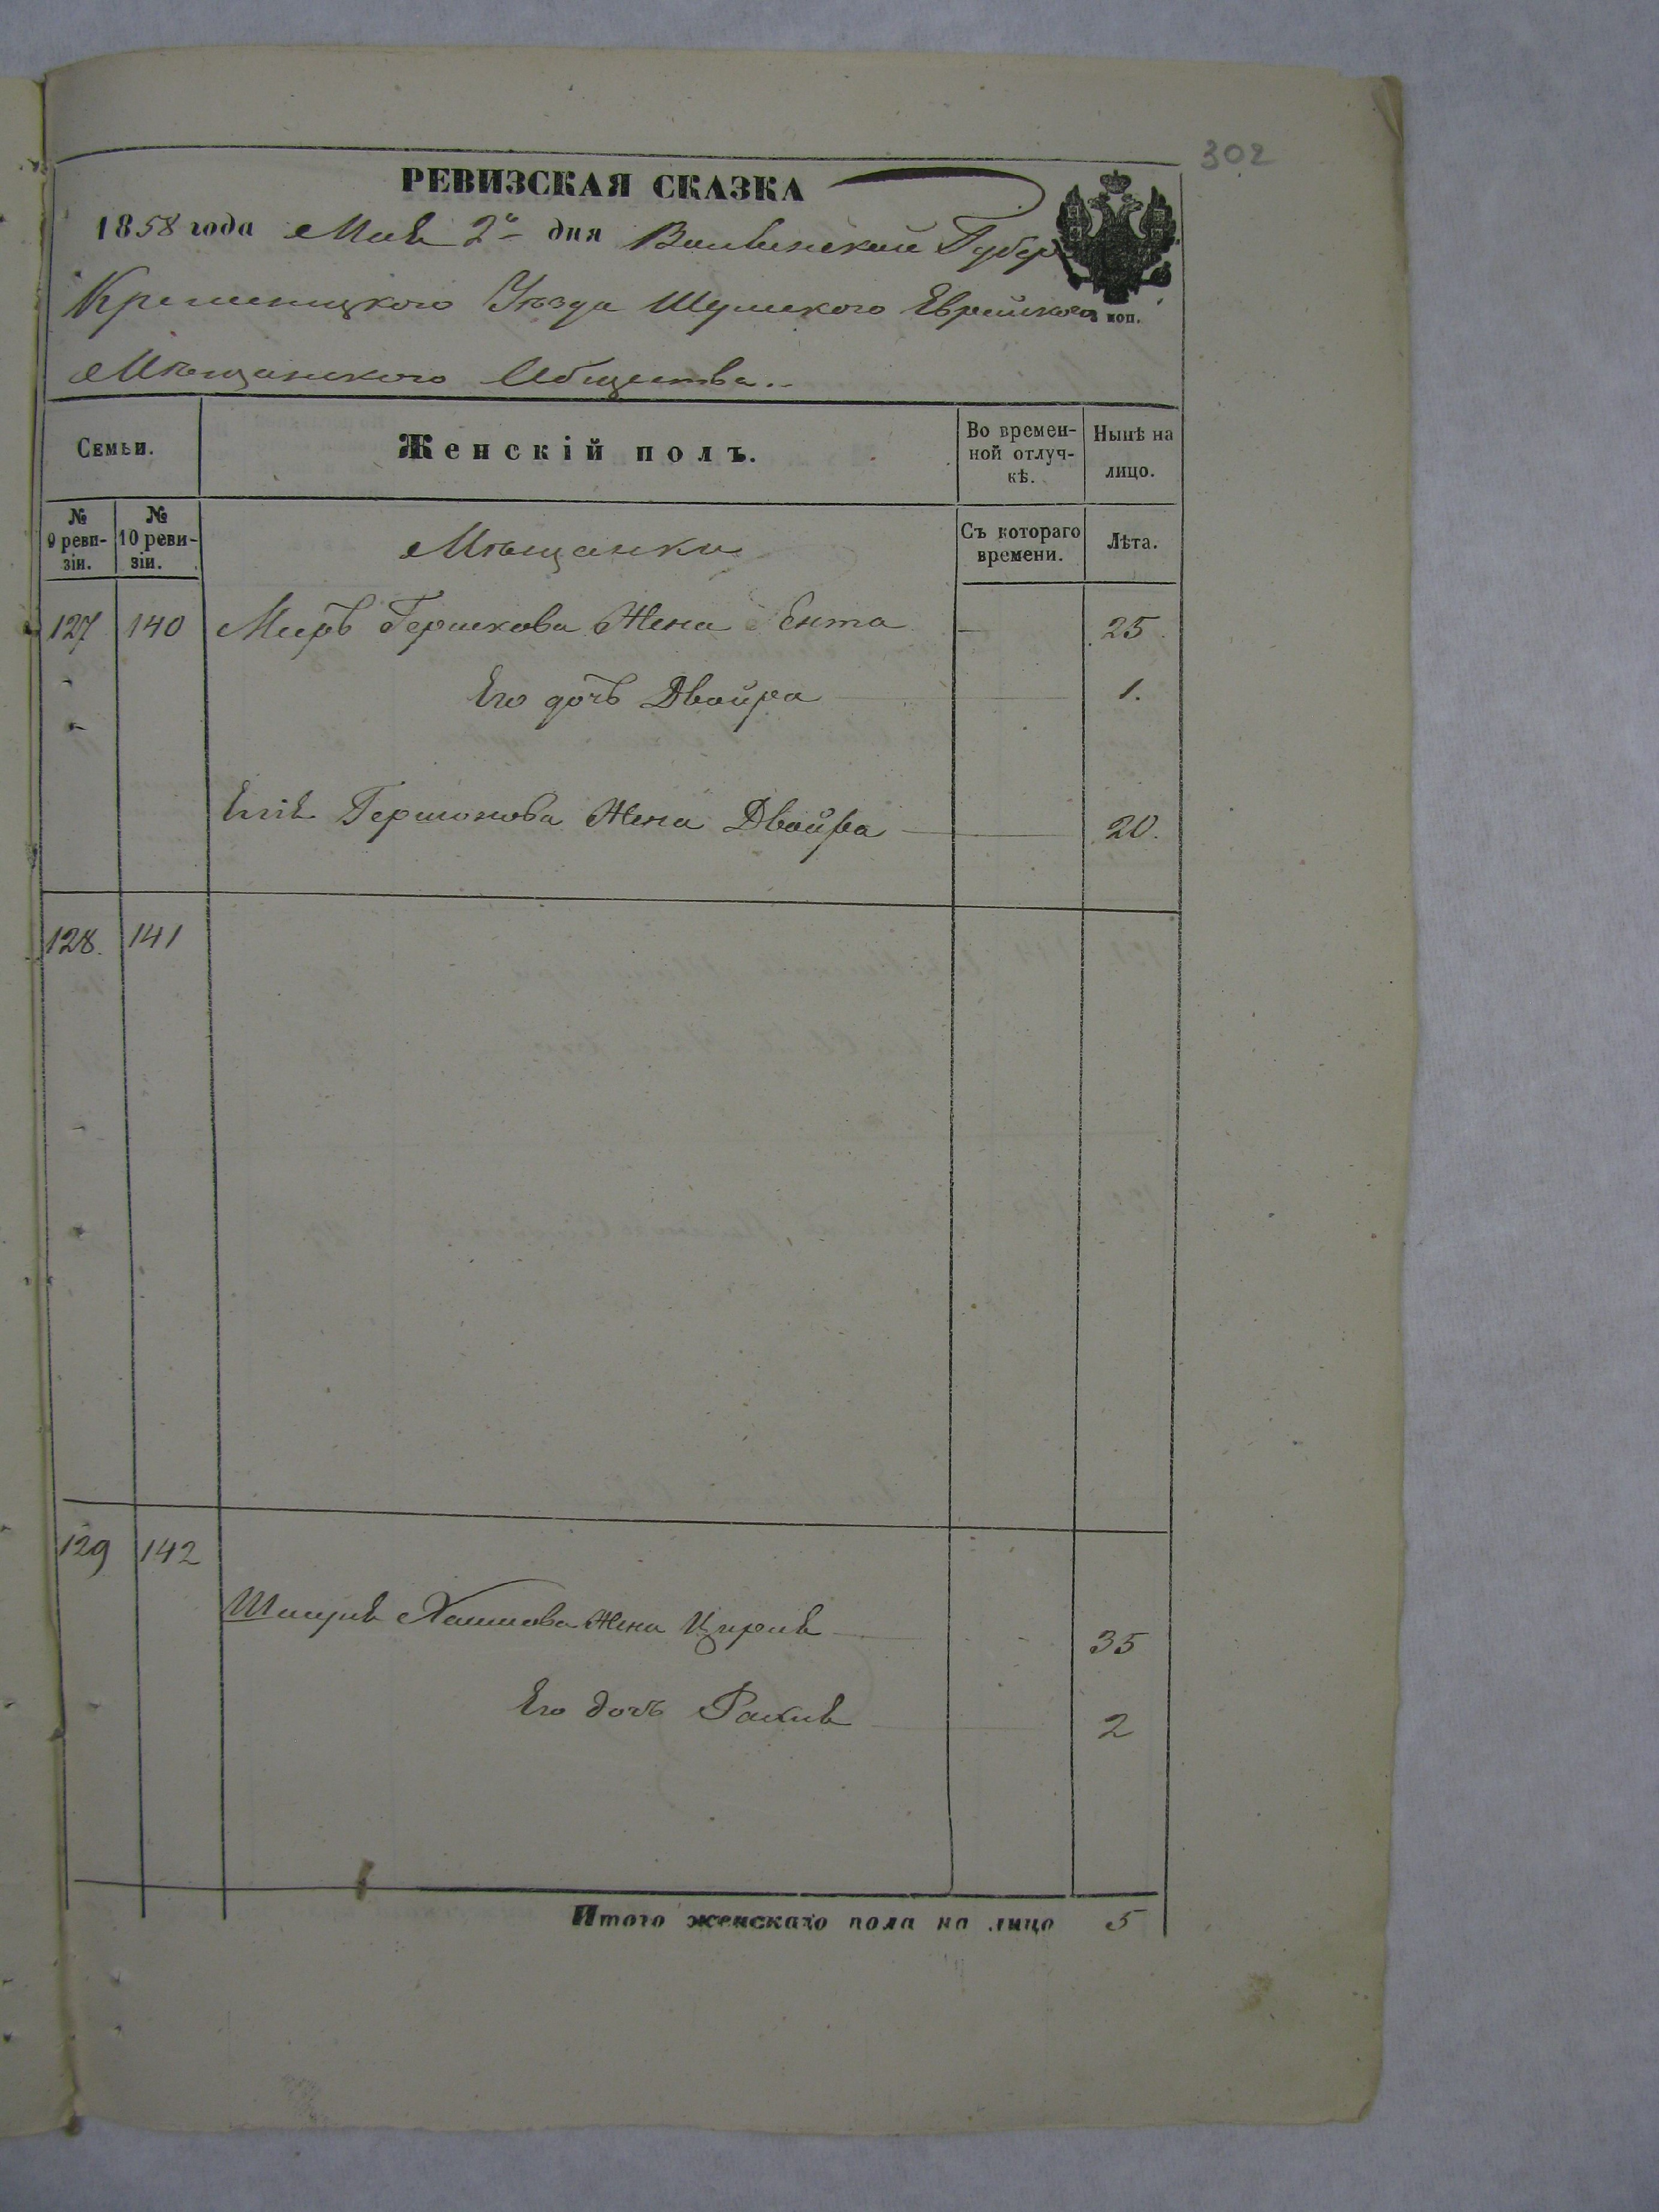 302
РЕВИЗСКАЯ СКАЗКА
1858 года Маія 2го дня Волынской Губер
Кременецкого Уѣзда Шумского Еврейского
3 коп.
Мѣщанского Общества.
Семьи. Женскій полъ. Во времен-ной отлуч-кѣ. Нынѣ на лицо.
№ 9 реви-зіи. № 10 реви-зіи. Мѣщанки Съ котораго времени. Лѣта.
127 140 Меръ Гершкова Жена Ента 25.
Его дочь Двойра 1.
Гершонова Жена Двойра 20.
128. 141
129 142
Хаимова Жена Цирля 35
Его дочь 2
Итого женскаго пола на лицо 5